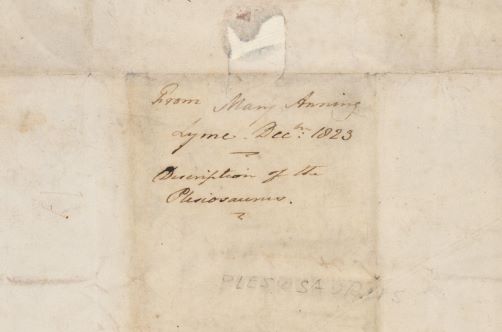 From Mary Anning
Lyme. Decbr: 1823
Description of the
Plesiosaurus.
PLESIOSAURUS